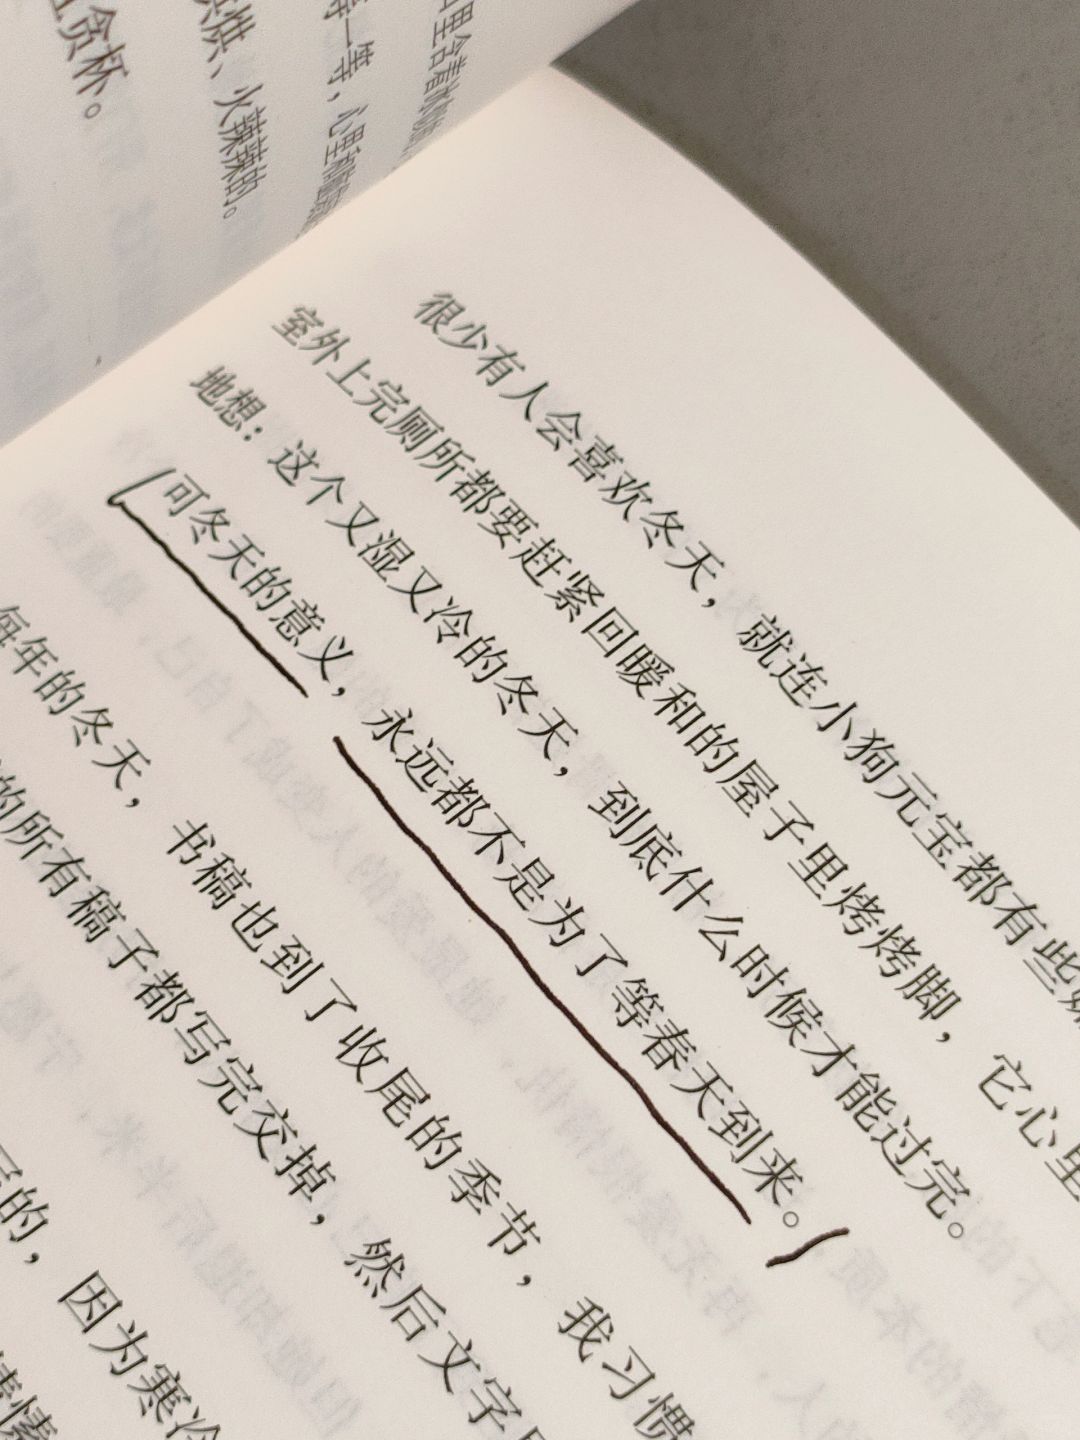 贪杯。
、火辣辣的。
等一等，心里
里含着冰
很少有人会喜欢冬天，就连小狗元宝都有些
室外上完厕所都要赶紧回暖和的屋子里烤烤脚，它心里
地想：这个又湿又冷的冬天，到底什么时候才能过完。
可冬天的意义，永远都不是为了等春天到来。
每年的冬天，书稿也到了收尾的季节，我习惯
的所有稿子都写完交掉，然后文字
的，因为寒冷
情愫